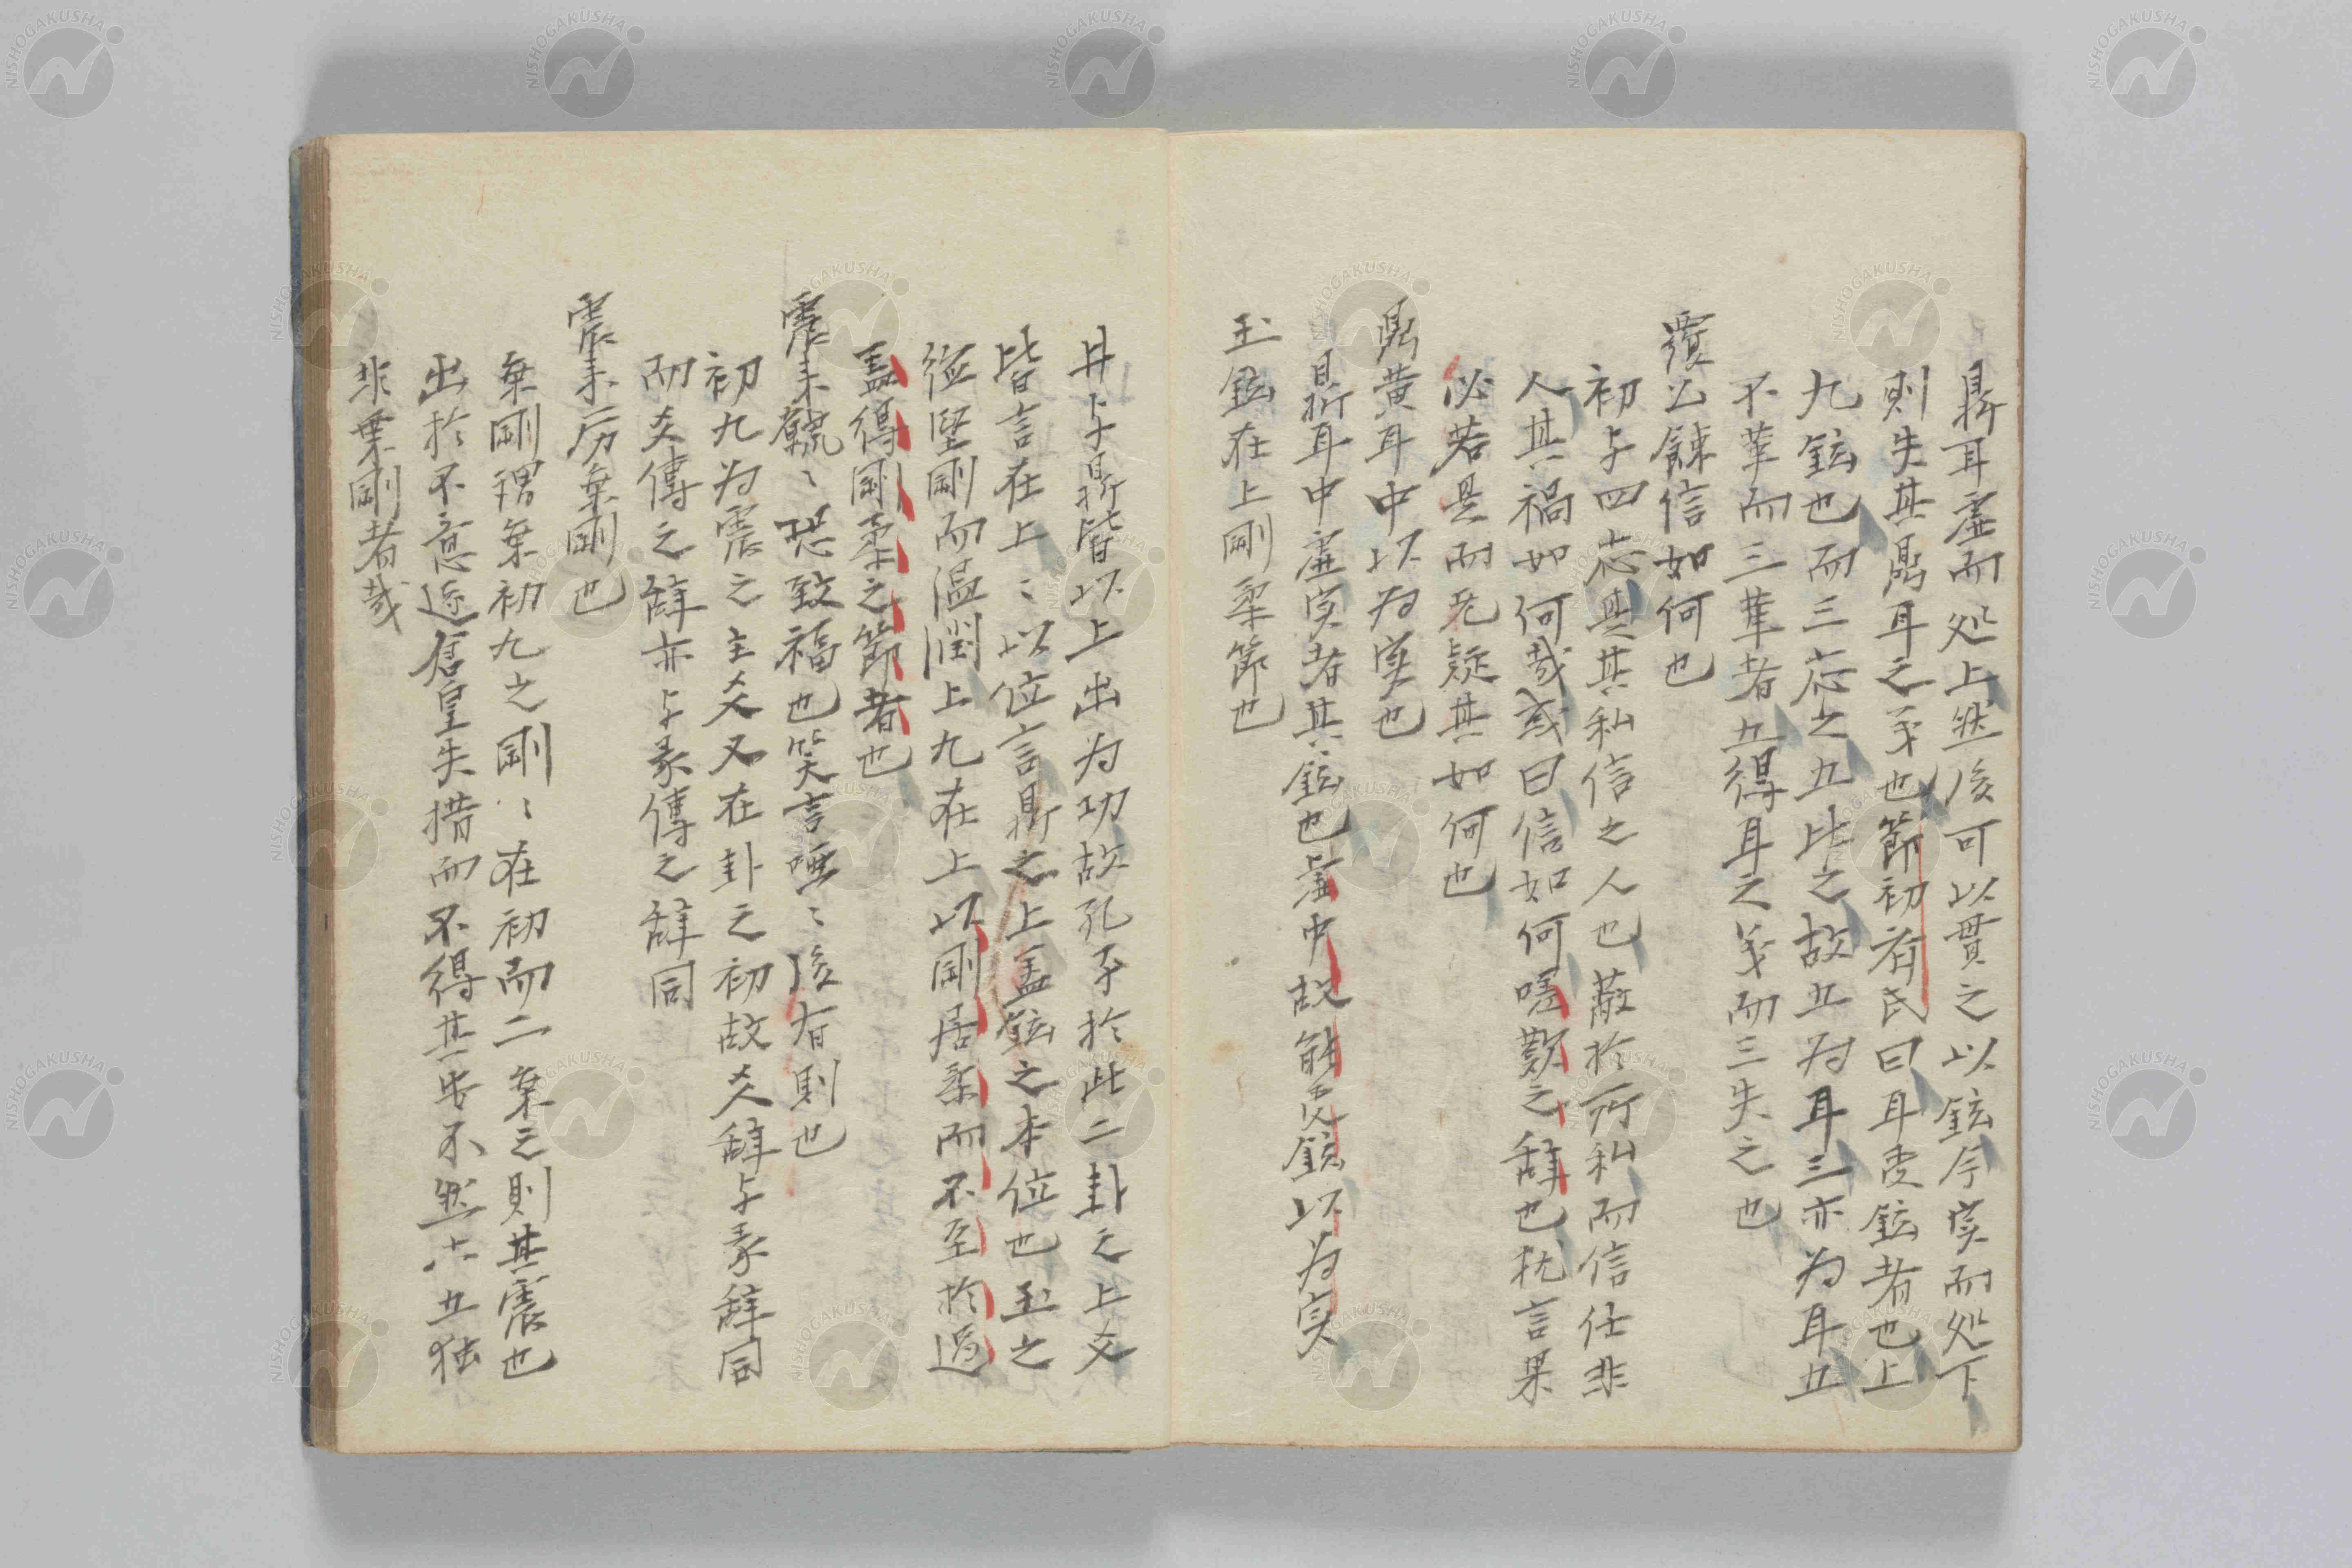 鼎耳虚而処上然後可以貫之以鉉今実而処下
則失其鼎耳之義也節初齊氏曰耳受鉉者也上
九鉉也而三応之五比之故五为耳三亦为耳五
不革而三革者五得耳之義而三失之也
覆公餗信如何也
初与四応其其私信之人也蔽於所私而信仕非
人其禍如何哉或曰信如何嗟歎之辞也犹言果
必若是而无疑其如何也
鼎黄耳中以为実也
鼎耳中虚実者其鉉也虚中故能受鉉以为実
玉鉉在上剛柔節也
井与鼎皆以上出为功故孔子於此二卦之上爻
皆言在上〻以位言鼎之上盖鉉之本位也玉之
爲堅剛而温潤上九在上以剛居柔而不至於過
盖得剛柔之節者也
震来虩〻恐致福也笑言唖〻後有則也
初九为震之主爻又在卦之初故爻辞与彖辞同
而爻傳之辞亦与彖傳之辞同
震来厉乗剛也
乗剛謂乗初九之剛〻在初而二乗之則其震也
出於不意遽倉皇失措而不得其安不然六五独
非乗剛者哉